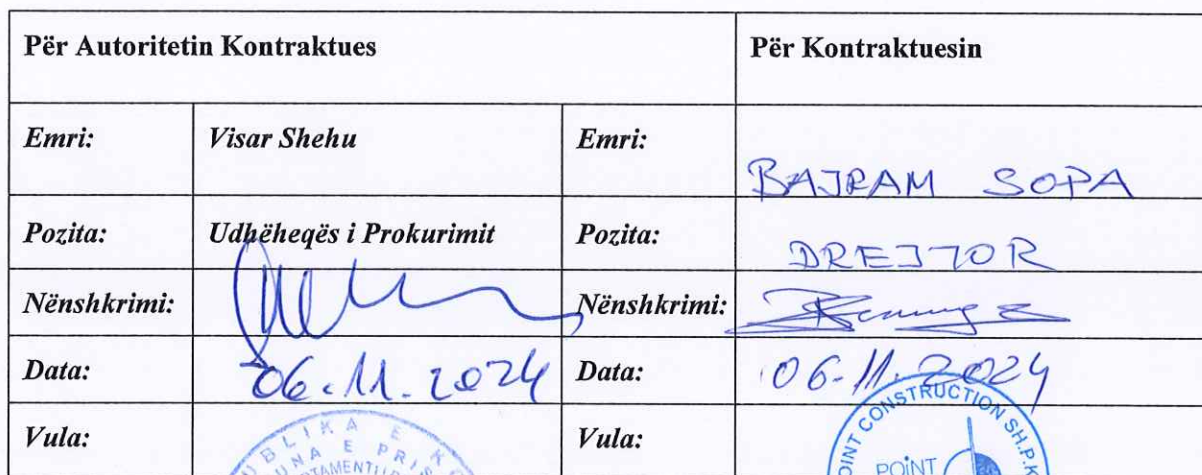 Për Autoritetin Kontraktues Për Kontraktuesin
Emri: Visar Shehu Emri: BAJRAM SOPA
Pozita: Udhëheqës i Prokurimit Pozita: DREJTOR
Nënshkrimi: Nënshkrimi:
Data: 06.11.2024 Data: 06.11.2024
Vula: Vula:
POINT CONSTRUCTION SH.P.K
POINT